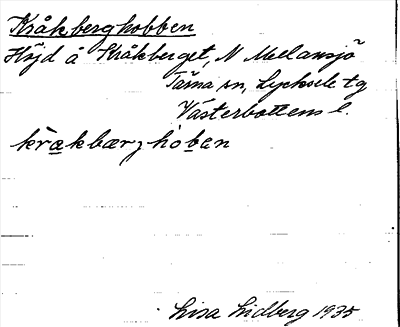 Kråkberghobben
Höjd å Kråkberget, N Mellansjö
Tärna sn, Lycksele tg
Västerbottens l.
kråkbærʒhoben
Lisa Lidberg 1935